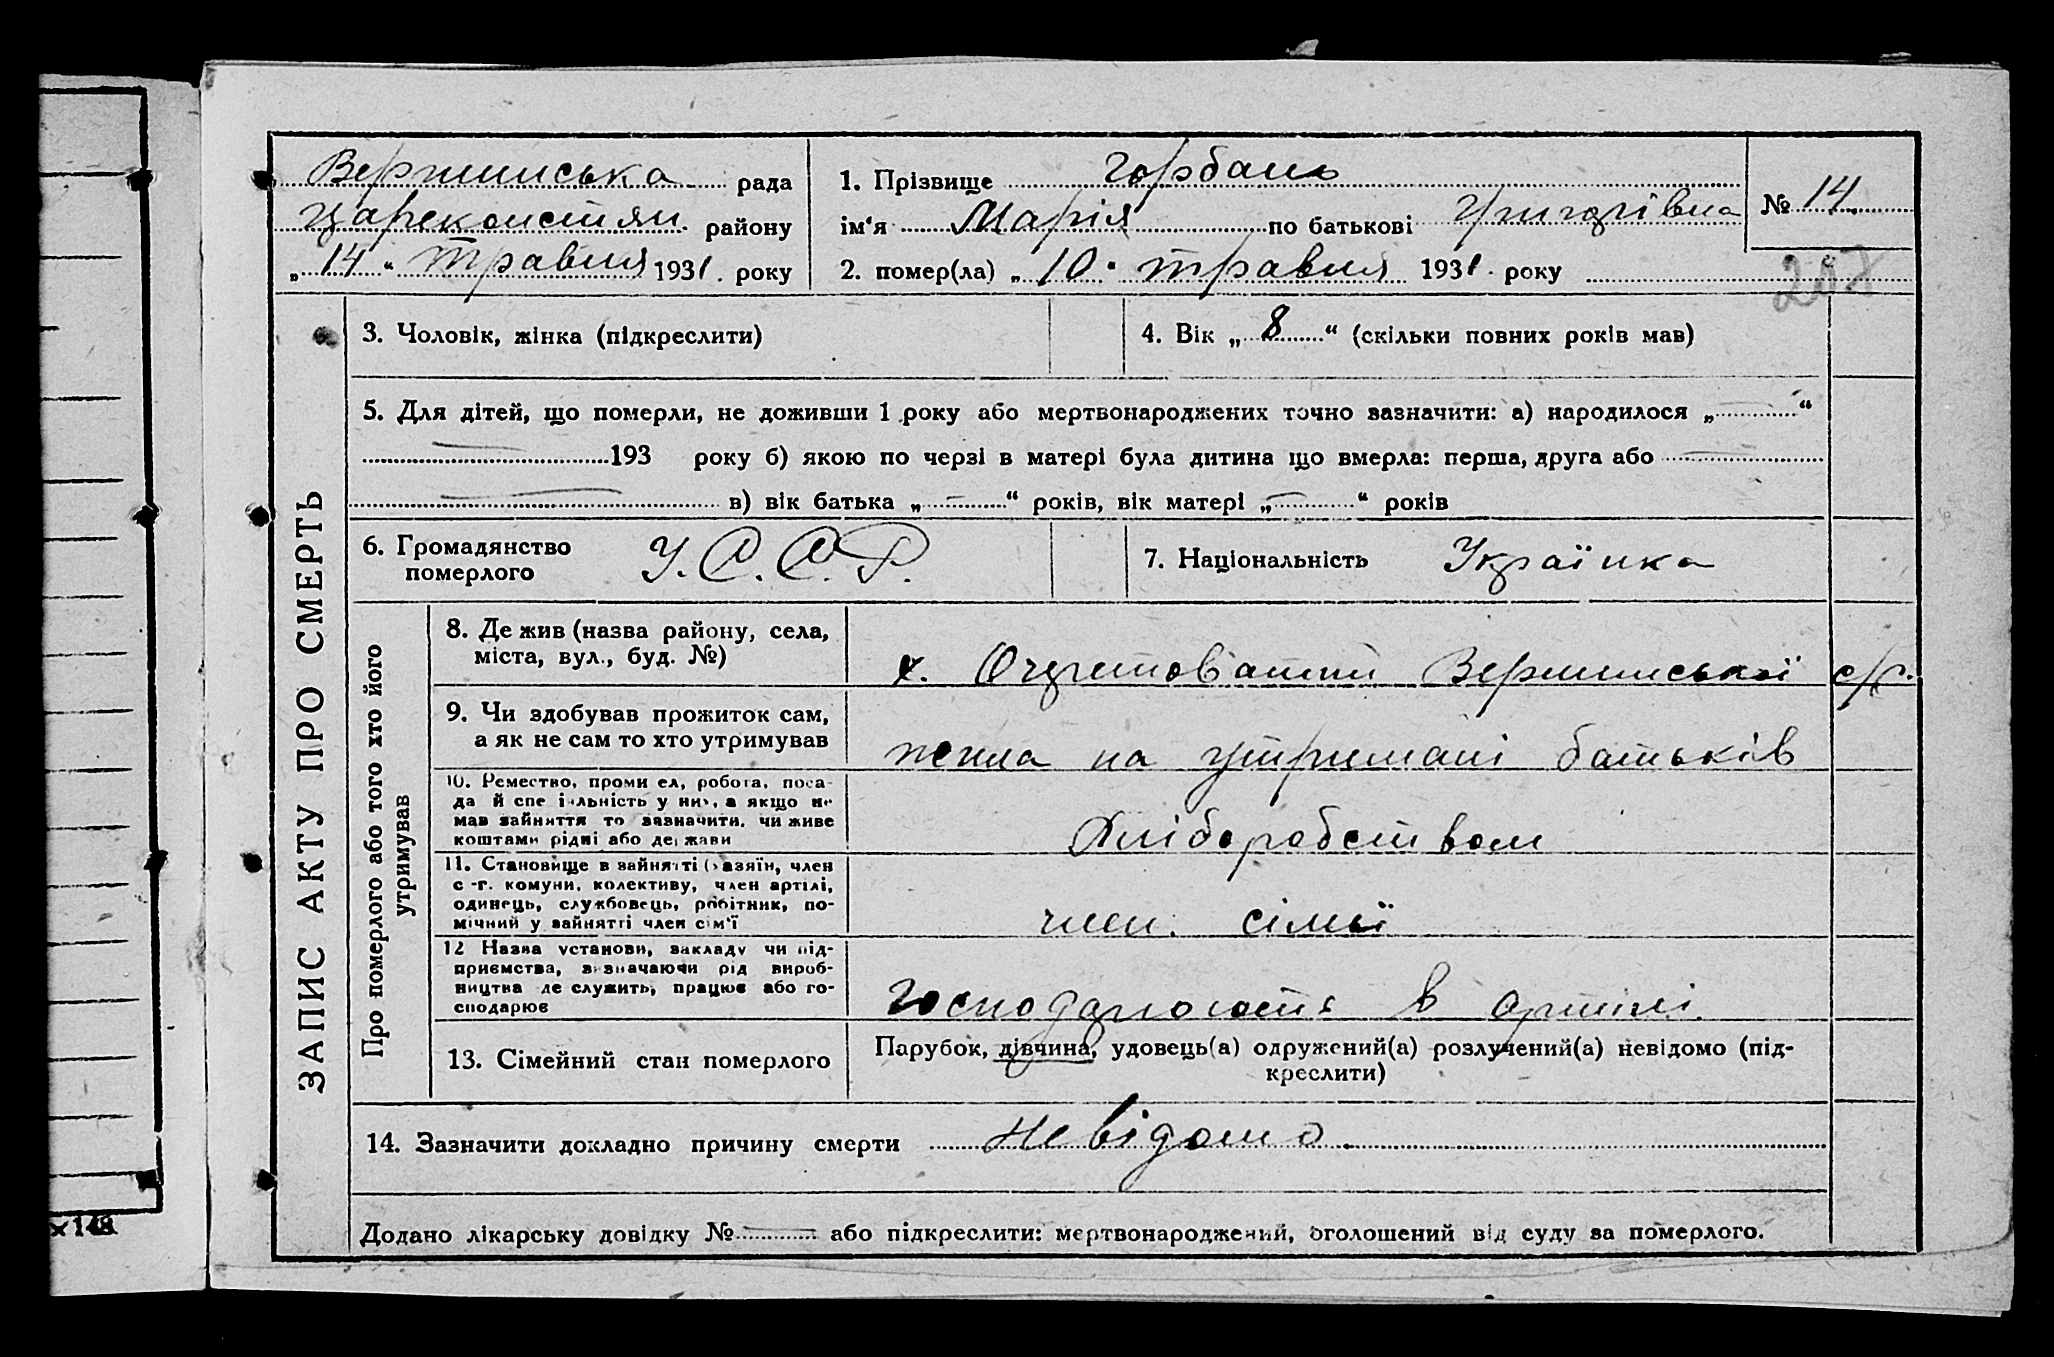 Вершинська рада
Цареконстян. району
„ 14 “ травня 1931. року
1. Прізвище Горбань
ім‘я Марія по батькові Григорівна
2. помер(ла) „ 10 “ травня 1931. року
№ 14.
207
ЗАПИС АКТУ ПРО СМЕРТЬ
3. Чоловік, жінка (підкреслити)
4. Вік „ 8 “ (скільки повних років мав)
5. Для дітей, що померли, не доживши 1 року або мертвонароджених точно зазначити: а) народилося „ — “
— 193 року б) якою по черзі в матері була дитина що вмерла: перша, друга або —
— в) вік батька „ — “ років, вік матері „ — “ років
6. Громадянство
померлого
У.С.С.Р.
7. Національність Українка
Про померлого або того хто його
утримував
8. Де жив (назва району, села,
міста, вул., буд. №)
х. Вершинської с/р.
9. Чи здобував прожиток сам,
а як не сам то хто утримував
жила на утримані батьків
10. Ремество, промисел, робота, поса-
да й спеціяльність у них, а якщо не
мав зайняття то зазначити, чи живе
коштами рідні або держави
Хліборобством
11. Становище в зайнятті (хазяїн, член
с-г. комуни, колективу, член артілі,
одинець, службовець, робітник, по-
мічний у зайнятті член сім‘ї
член. сімьї
12 Назва установи, закладу чи під-
приємства, визначаючи рід вироб-
ництва де служить, працює або го-
сподарює
в артілі.
13. Сімейний стан померлого
Парубок, дівчина, удовець(а) одружений(а) розлучений(а) невідомо (під-
креслити)
14. Зазначити докладно причину смерти Невідомо.
Додано лікарську довідку № — або підкреслити: мертвонароджений, оголошений від суду за померлого.
×148